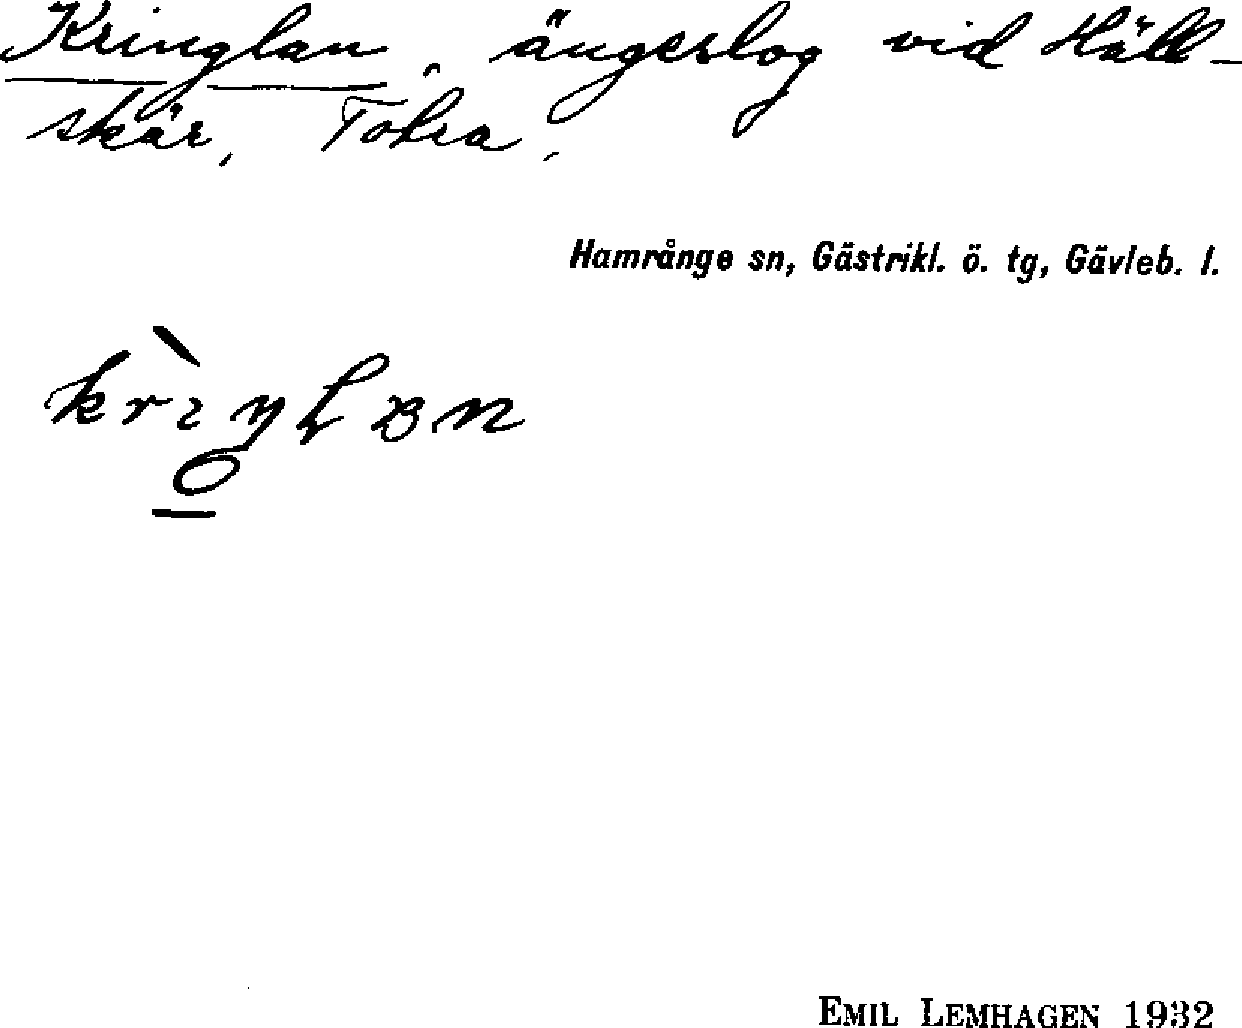 Kringlan, ängeslog vid Häll-
skär, Tolra.
Hamrånge sn, Gästrikl. ö. tg, Gävleb. l.
EMIL LEMHAGEN 1932